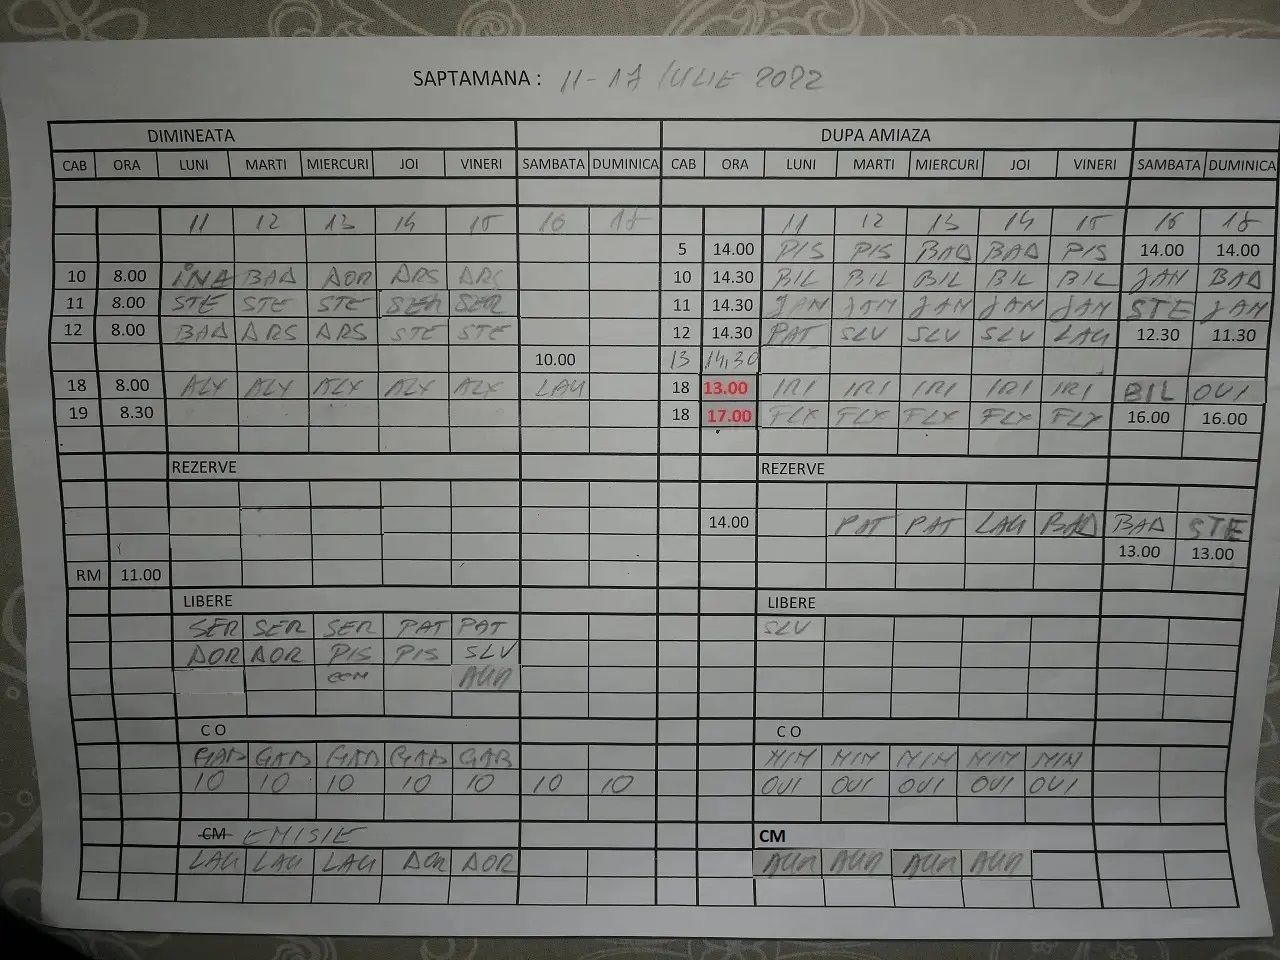 SAPTAMANA : 11-17 IULIE 2022
DIMINEATA DUPA AMIAZA
CAB ORA LUNI MARTI MIERCURI JOI VINERI SAMBATA DUMINICA CAB ORA LUNI MARTI MIERCURI JOI VINERI SAMBATA DUMINICA
11 12 13 14 15 16 18 11 12 13 14 15 16 18
5 14.00 PIS PIS BAD BAD PIS 14.00 14.00
10 8.00 INA BAD DOR DRS DRS 10 14.30 BIL BIL BIL BIL BIL JAN BAD
11 8.00 STE STE STE SER SER 11 14.30 JAN JAN JAN JAN JAN STE JAN
12 8.00 BAD DRS DRS STE STE 12 14.30 PAT SLV SLV SLV LAU 12.30 11.30
10.00 13 14,30
18 8.00 ALX ALX ALX ALX ALX LAU 18 13.00 IRI IRI IRI IRI IRI BIL OVI
19 8.30 18 17.00 FLX FLX FLX FLX FLX 16.00 16.00
REZERVE REZERVE
14.00 PAT PAT LAU BAD BAD STE
13.00 13.00
RM 11.00
LIBERE LIBERE
SER SER SER PAT PAT SLV
DOR DOR PIS PIS SLV
AUR
C O C O
GAB GAB GAB GAB GAB MIM MIM MIM MIM MIM
10 10 10 10 10 10 10 OVI OVI OVI OVI OVI
CM EMISIE CM
LAU LAU LAU DOR DOR AUR AUR AUR AUR